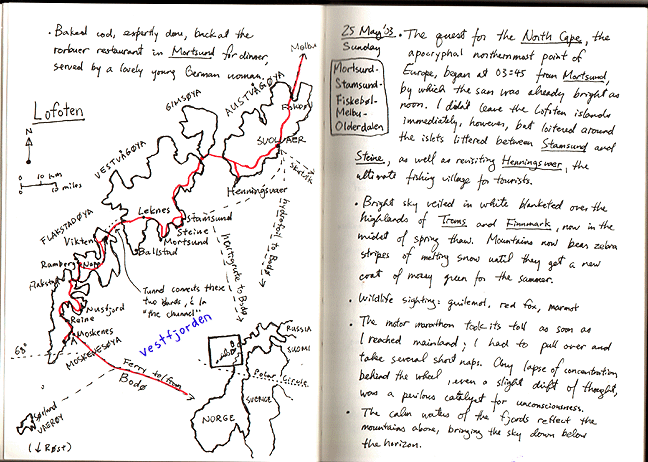 • Baked cod, expertly done, back at the
rorbuer restaurant in Mortsund for dinner,
served by a lovely young German woman.
Lofoten
N
0 10 km
0 10 miles
Melbu
Fiskebøl
AUSTVÅGØYA
GIMSØYA
SVOLVÆR
Skutvik
VESTVÅGØYA
Henningsvaer
Leknes
Stamsund
Steine
Mortsund
Ballstad
FLAKSTADØYA
Vikten
Ramberg
Napp
Flakstad
Nusfjord
Reine
A
Moskenes
MOSKENESØYA
Tunnel connects these
two islands, in
"the channel"
hydrofoil to Bodø
hurtigrute to Bodø
vestfjorden
68°
Ferry to/from
Bodø
Sørland
VÆRØY
(↓ Røst)
RUSSIA
SUOMI
Polar Circle
SVERIGE
NORGE
25 May '03
Sunday
Mortsund-
Stamsund-
Fiskebøl-
Melbu-
Olderdalen
• The quest for the North Cape, the
apocryphal northernmost point of
Europe, began at 03:45 from Mortsund,
by which the sun was already bright as
noon. I didn't leave the Lofoten islands
immediately, however, but loitered around
the islets littered between Stamsund and
Steine, as well as revisiting Henningsvaer, the
ultimate fishing village for tourists.
• Bright sky veiled in white blanketed over the
highlands of Troms and Finnmark, now in the
midst of spring thaw. Mountains now bear zebra
stripes of melting snow until they get a new
coat of mossy green for the summer.
• Wildlife sighting: guillemot, red fox, marmot
• The motor marathon took its toll as soon as
I reached mainland; I had to pull over and
take several short naps. Any lapse of concentration
behind the wheel, even a slight drift of thought,
was a perilous catalyst for unconsciousness.
• The calm waters of the fjords reflect the
mountains above, bringing the sky down below
the horizon.